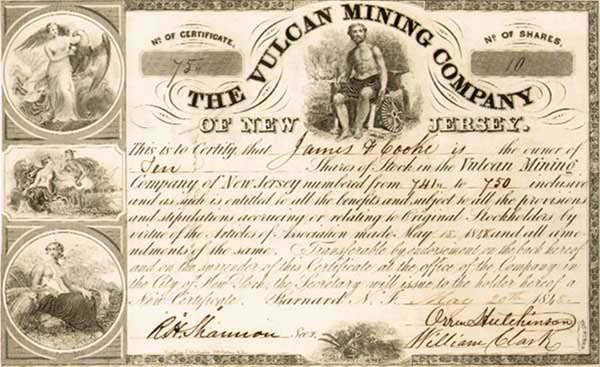 No. OF CERTIFICATE.
75
No. OF SHARES.
10
THE VULCAN MINING COMPANY
OF NEW JERSEY.
This is to Certify, that James F Cooke is the owner of
Ten Shares of Stock in the Vulcan Mining
Company of New Jersey numbered from 741 to 750 inclusive
and as such is entitled to all the benefits and subject to all the provisions
and stipulations accruing or relating to Original Stockholders by
virtue of the Articles of Association made May 18 1848 and all amendments
of the same. Transferable by endorsement on the back hereof
and on the surrender of this Certificate at the office of the Company in
the City of New York, the Secretary will issue to the holder hereof a
New Certificate. Barnard N. Y. May 20th 1848
R. H. Shannon Secy.
Orren Hutchinson
William Clark